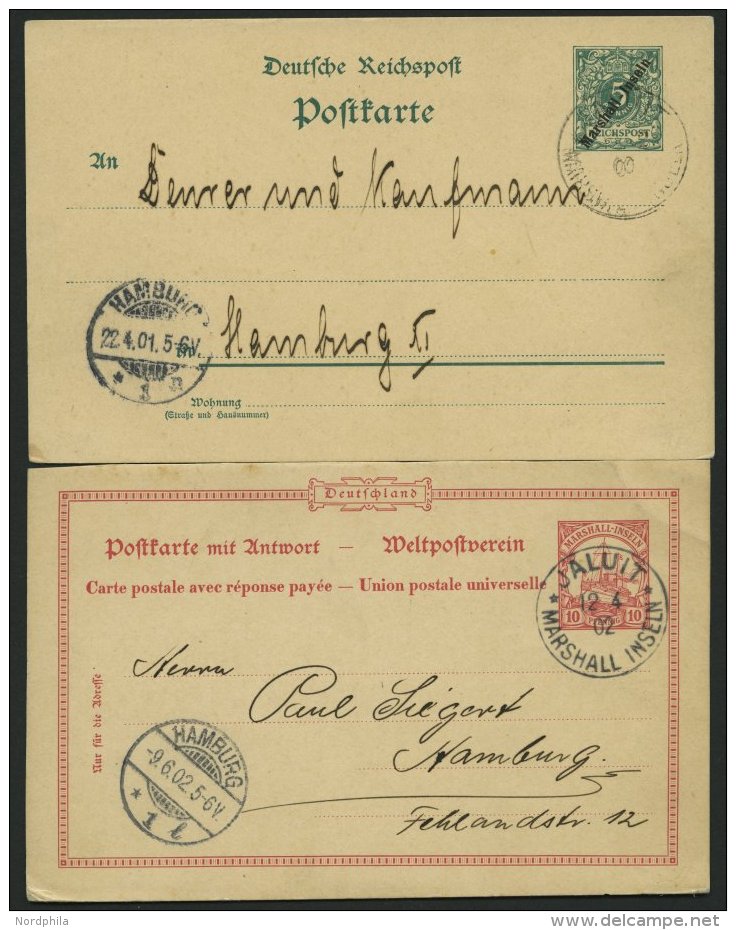 Deutsche Reichspost
Postkarte
Marshall-Inseln
5
REICHSPOST
00
An
Denrer und Kaufmann
HAMBURG
22.4.01.5-6V.
1 n
in
Hamburg XI
Wohnung
(Straße und Hausnummer)
Deutschland
Postkarte mit Antwort — Weltpostverein
Carte postale avec réponse payée — Union postale universelle
MARSHALL-INSELN
10 PFENNIG 10
JALUIT
12 4
02
MARSHALL INSELN
Nur für die Adresse
Herrn
Paul Siegert
Hamburg.
Fehlandstr. 12
HAMBURG
-9.6.02.5-6V.
1 l
Nordphila
delcampe.net